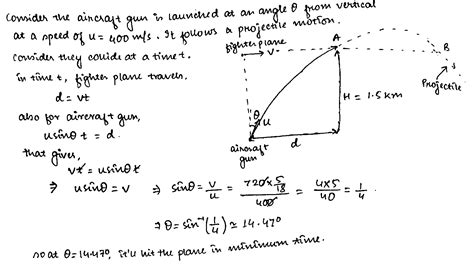 Consider the aircraft gun is launched at an angle θ from vertical
at a speed of u = 400 m/s. It follows a projectile motion.
Consider they collide at a time t.
in time t, fighter plane travels,
d = vt
also for aircraft gun,
u sinθ t = d.
that gives,
vt = u sinθ t
⇒ u sinθ = v ⇒ sinθ = v/u = (720 × 5/18)/400 = (4×5)/40 = 1/4.
⇒ θ = sin⁻¹(1/4) ≃ 14.47°
so at θ = 14.47°, it'll hit the plane in minimum time.
fighter plane
V
A
B
Projectile
θ
u
H = 1.5 km
aircraft
gun
d